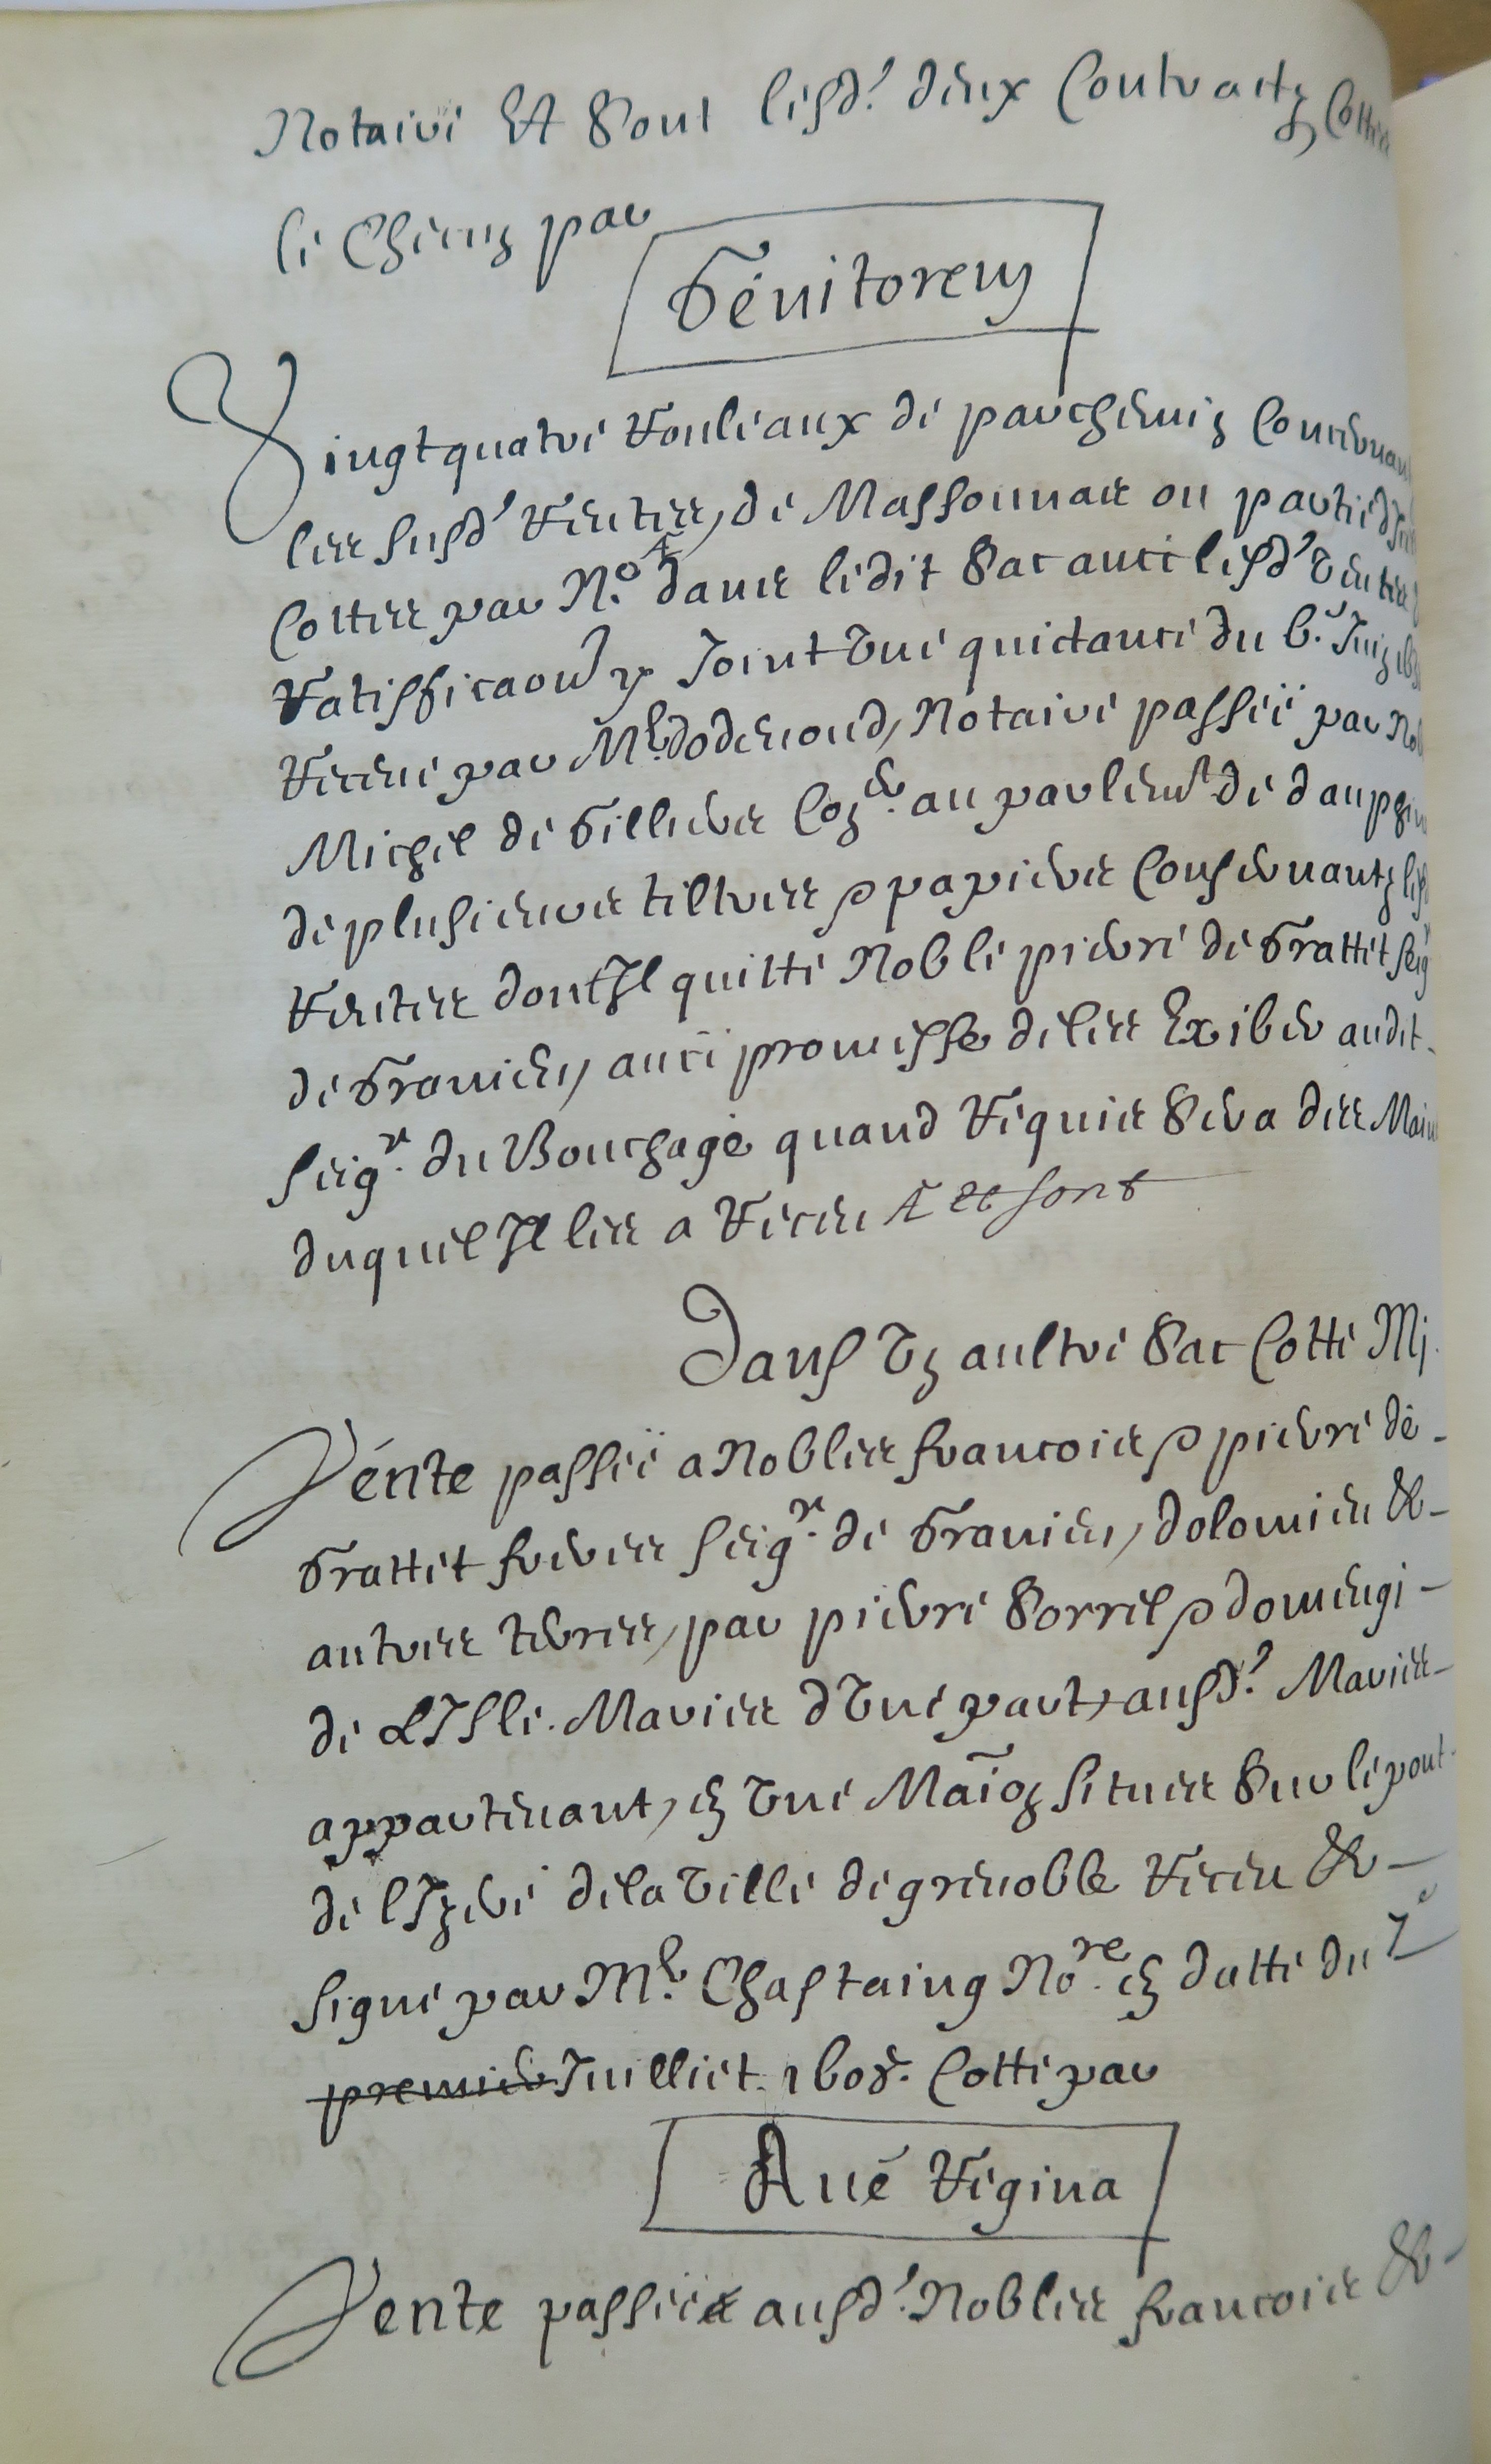 Notaire Et sont lesd.' deux Contractz Cottes
le Chiens par
Génitorem
Vingtquatre Rouleaux de parchemin Concernant
les susd' Rentes, de Massonnas ou partie
Cottes par N.o dans ledit sac avec lesd' Ventes
Ratifficaon'' y Joint Une quictance du 6.e Juin
Receue par Me. dodemond, Notaire passée par
Michel de Gillier Con.er au parlem.t de dauphi
de plusieurs tiltres & papiers Consernantz
Rentes dont Il quitte Noble pierre de Grattet seigr
de Granieu, avec promesse de les Exiber audit
seigr. du Bouchage quand Requis sera des
duquel Il les a Receu et sont
Dans Un aultre sac Cotté Mj.
Vente passée a Nobles francois & pierre de
Grattet freres seigr. de Granieu, dolomieu &
autres terres, par pierre Sorrel & domenge
de L'Isle. Maries d'Une part, ausd.' Maries
appartenant, en Une Maion scituee sur le pont
de l'Izere de la Ville de grenoble Receu &
signé par Me. Chastaing Nore. en datte du 7e
premier Juilliet. 1608. Cotté par
Aué Régina
Vente passée ausd.' Nobles francois &